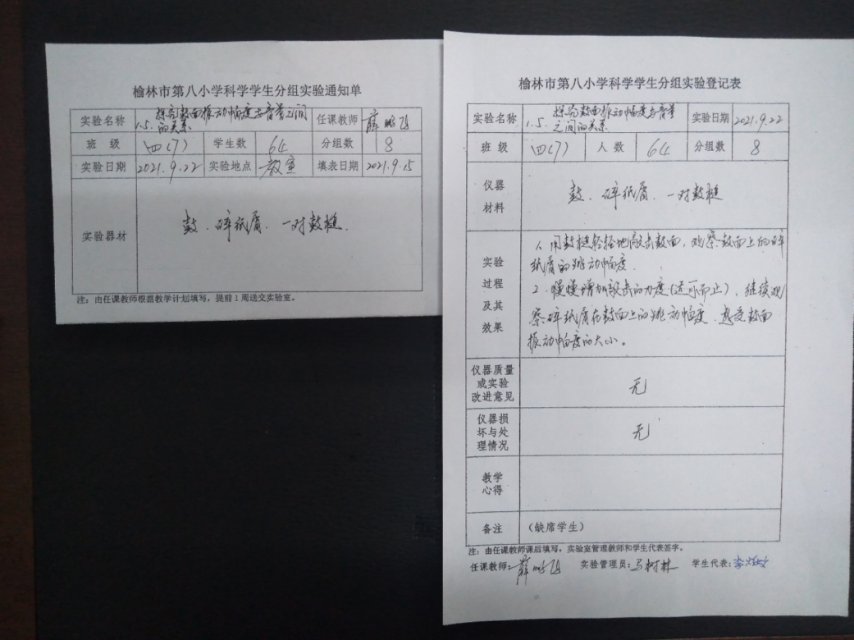 榆林市第八小学科学学生分组实验通知单
实验名称 1.5. 探究鼓面振动幅度与音量之间的关系 任课教师
班 级 四(7) 学生数 64 分组数 8
实验日期 2021.9.22 实验地点 教室 填表日期 2021.9.15
实验器材 鼓、碎纸屑、一对鼓槌.
注：由任课教师根据教学计划填写，提前1周送交实验室。
榆林市第八小学科学学生分组实验登记表
实验名称 1.5. 探究鼓面振动幅度与音量之间的关系 实验日期 2021.9.22
班 级 四(7) 人 数 64 分组数 8
仪器材料 鼓、碎纸屑、一对鼓槌
实验过程及其效果
1、用鼓槌轻轻地敲击鼓面，观察鼓面上的碎
纸屑的跳动幅度.
2、慢慢增加敲击的力度(适可而止)，继续观
察碎纸屑在鼓面上的跳动幅度、感受鼓面
振动幅度的大小。
仪器质量或实验改进意见 无
仪器损坏与处理情况 无
教学心得
备注 （缺席学生）
注：由任课教师课后填写，实验室管理教师和学生代表签字。
任课教师： 实验管理员：马树林 学生代表：